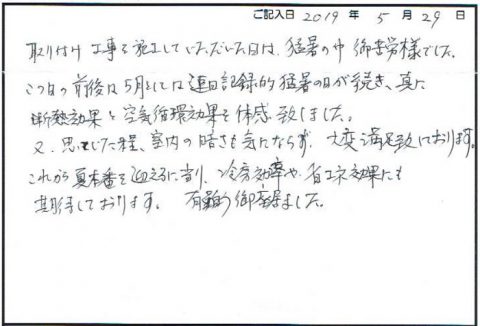 ご記入日 2019 年 5 月 29 日
取り付け工事を施工していただいた日は、猛暑の中 御苦労様でした。
この日の前後は5月としては連日記録的猛暑の日が続き、真に
断熱効果と空気循環効果を体感致しました。
又、思っていた程、室内の暗さも気にならず、大変満足致しております。
これから夏本番を迎えるに当り、冷房効率や、省エネ効果にも
期待しております。 有難う御座いました。